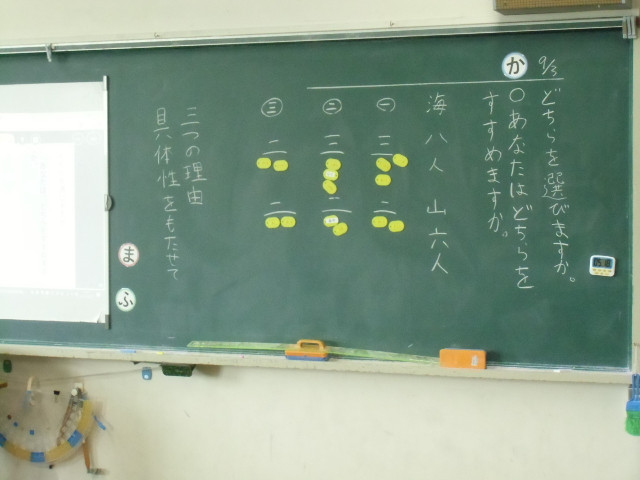 9/3
どちらを選びますか。
か
○あなたはどちらを
すすめますか。
海 八人 山 六人
㊀ 三 二
㊁ 三 二
㊂ 二 二
三つの理由
具体性をもたせて
ま
ふ